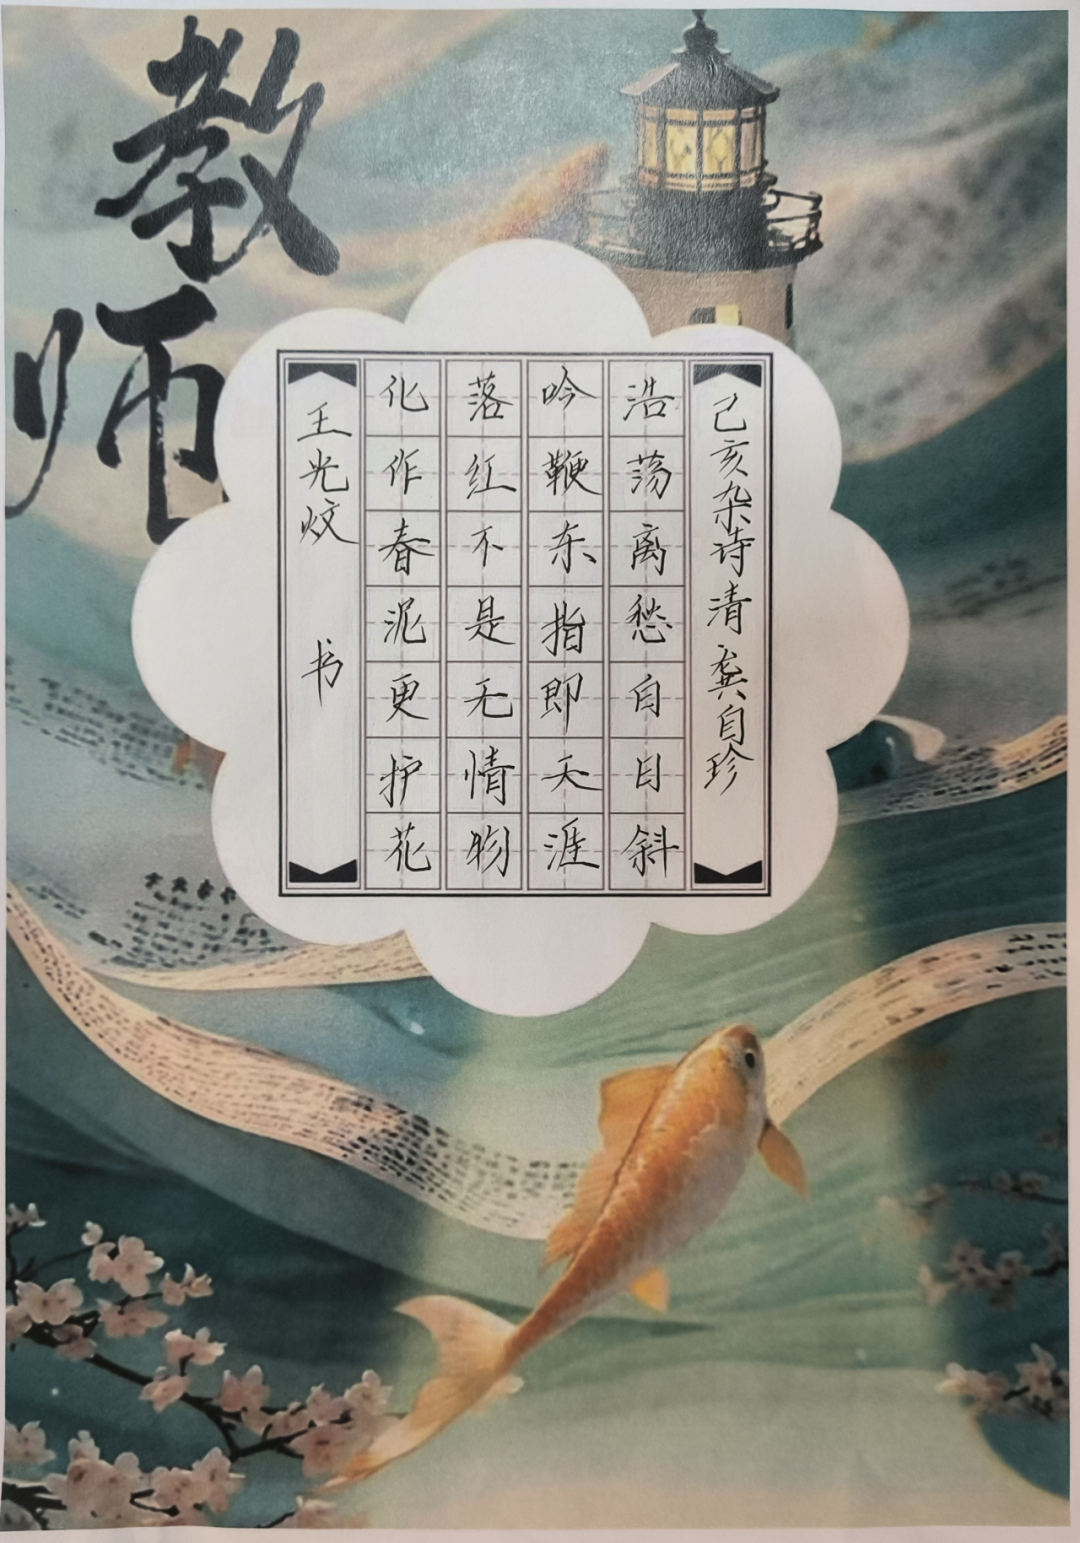 教师
己亥杂诗 清 龚自珍
浩荡离愁白日斜
吟鞭东指即天涯
落红不是无情物
化作春泥更护花
王光炆 书